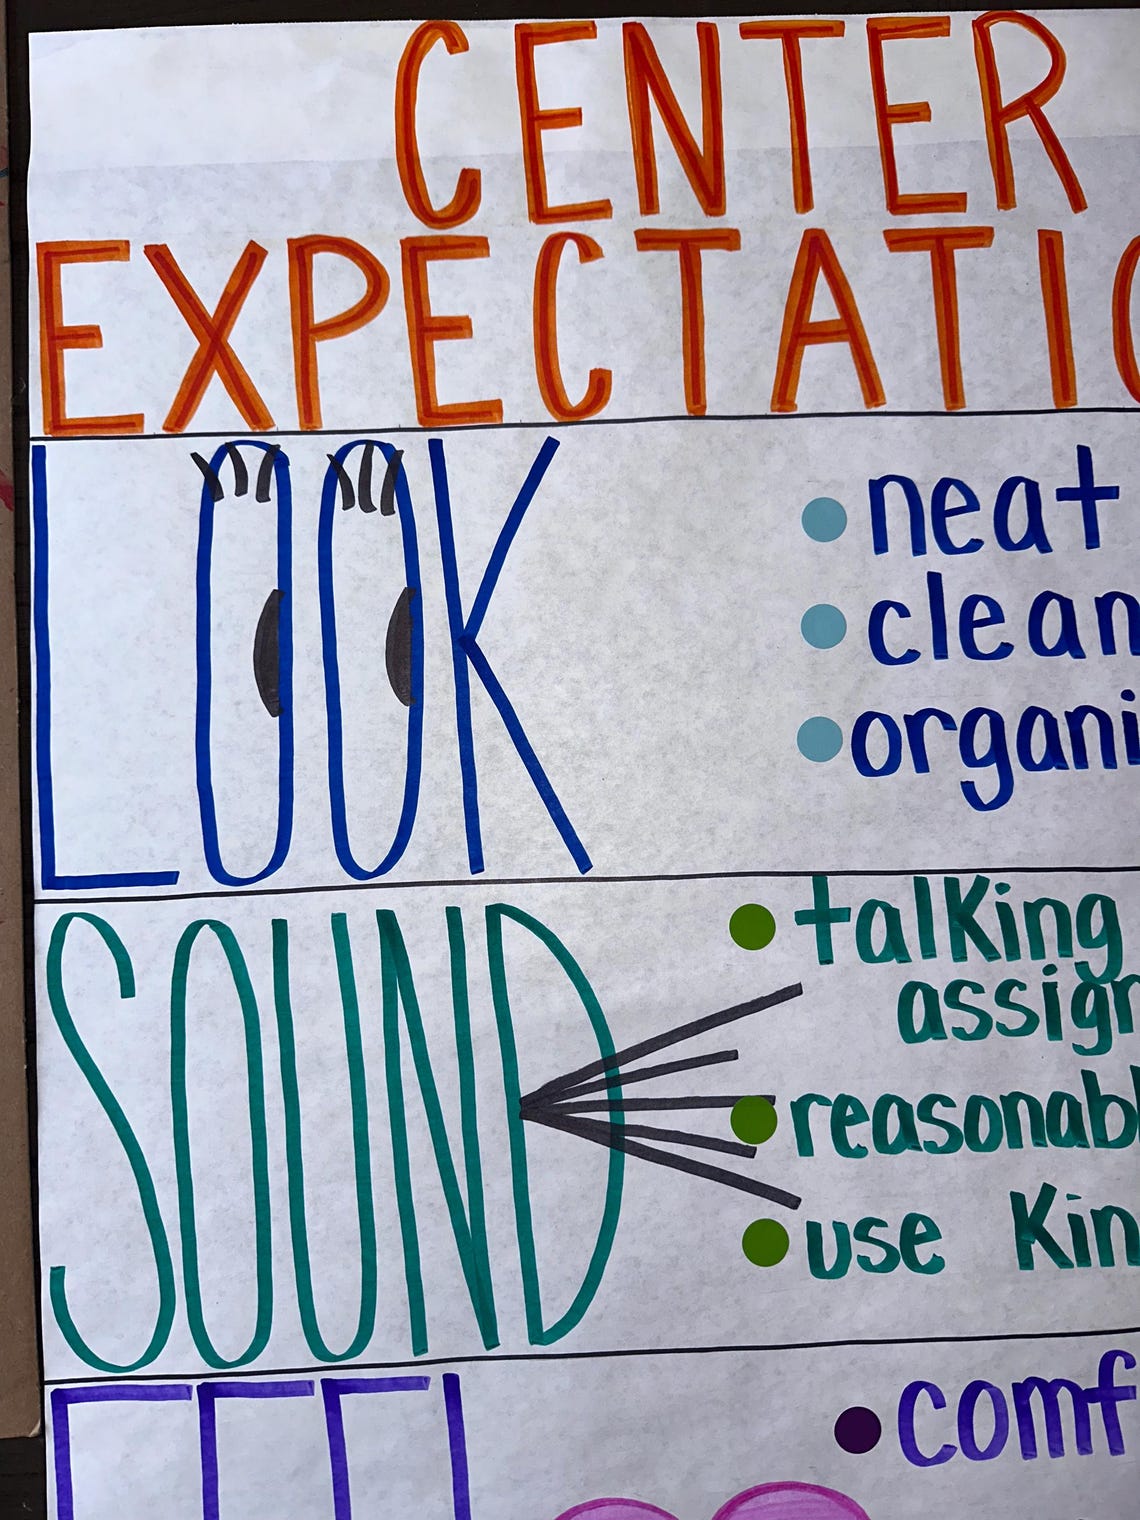 CENTER
EXPECTATIO
LOOK
• neat
• clean
• organi
SOUND
• talking
assign
• reasonabl
• use kin
FEEL
• comf